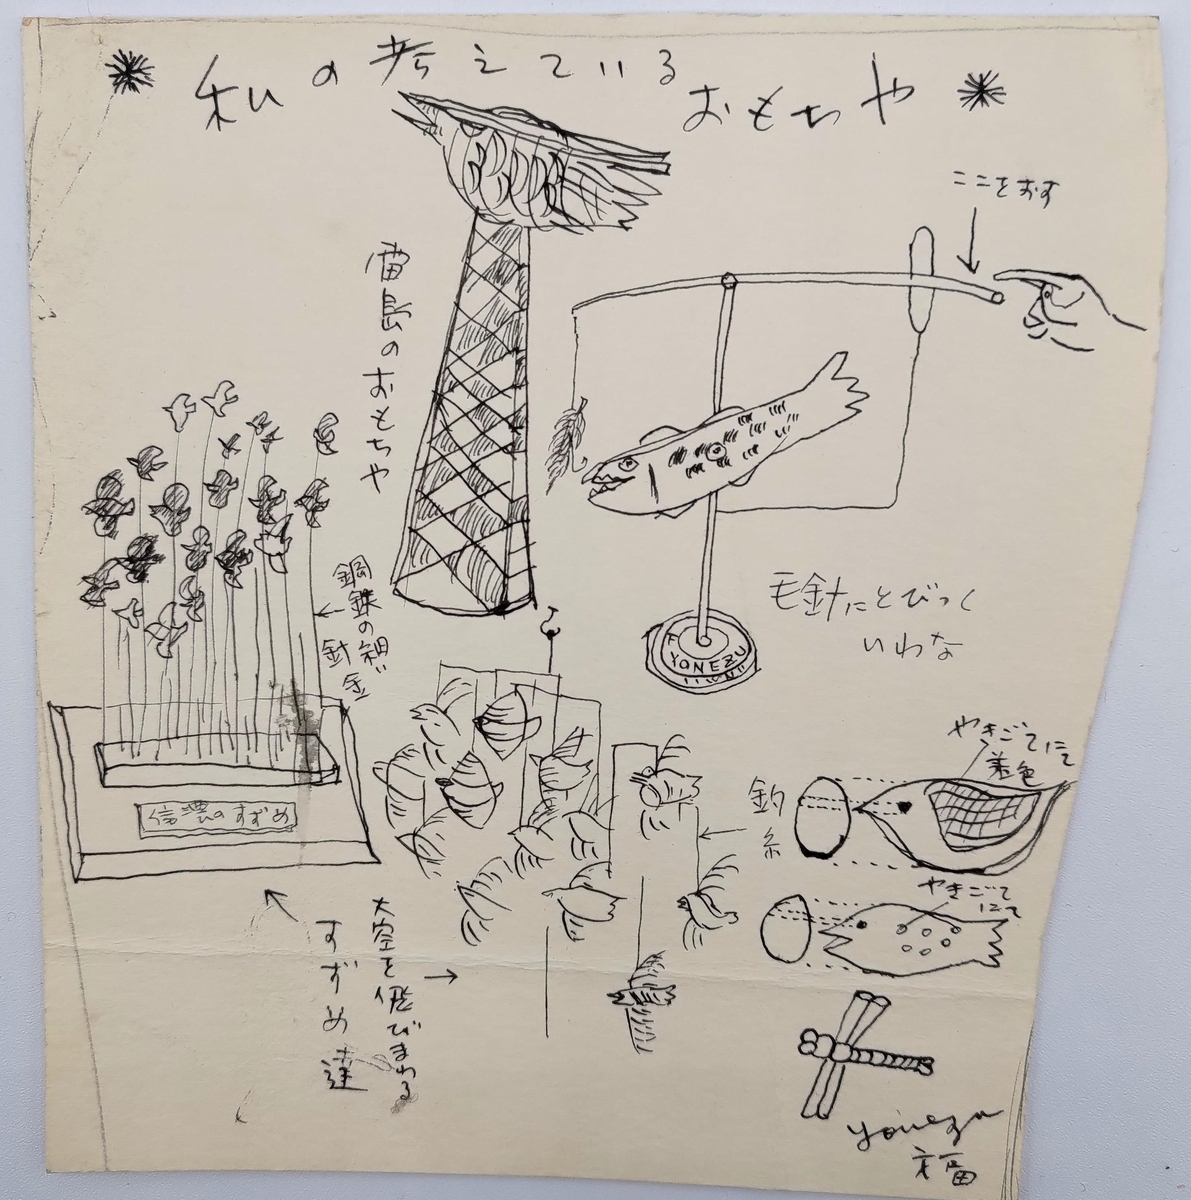 私の考えている おもちや
ここをおす
雷鳥のおもちや
毛針にとびつく
いわな
YONEZU
鋼鉄の細い
針金
信濃のすずめ
釣糸
やきごてにて
着色
やきごて
にて
大空を飛びまわる
すずめ達
yonezu
福